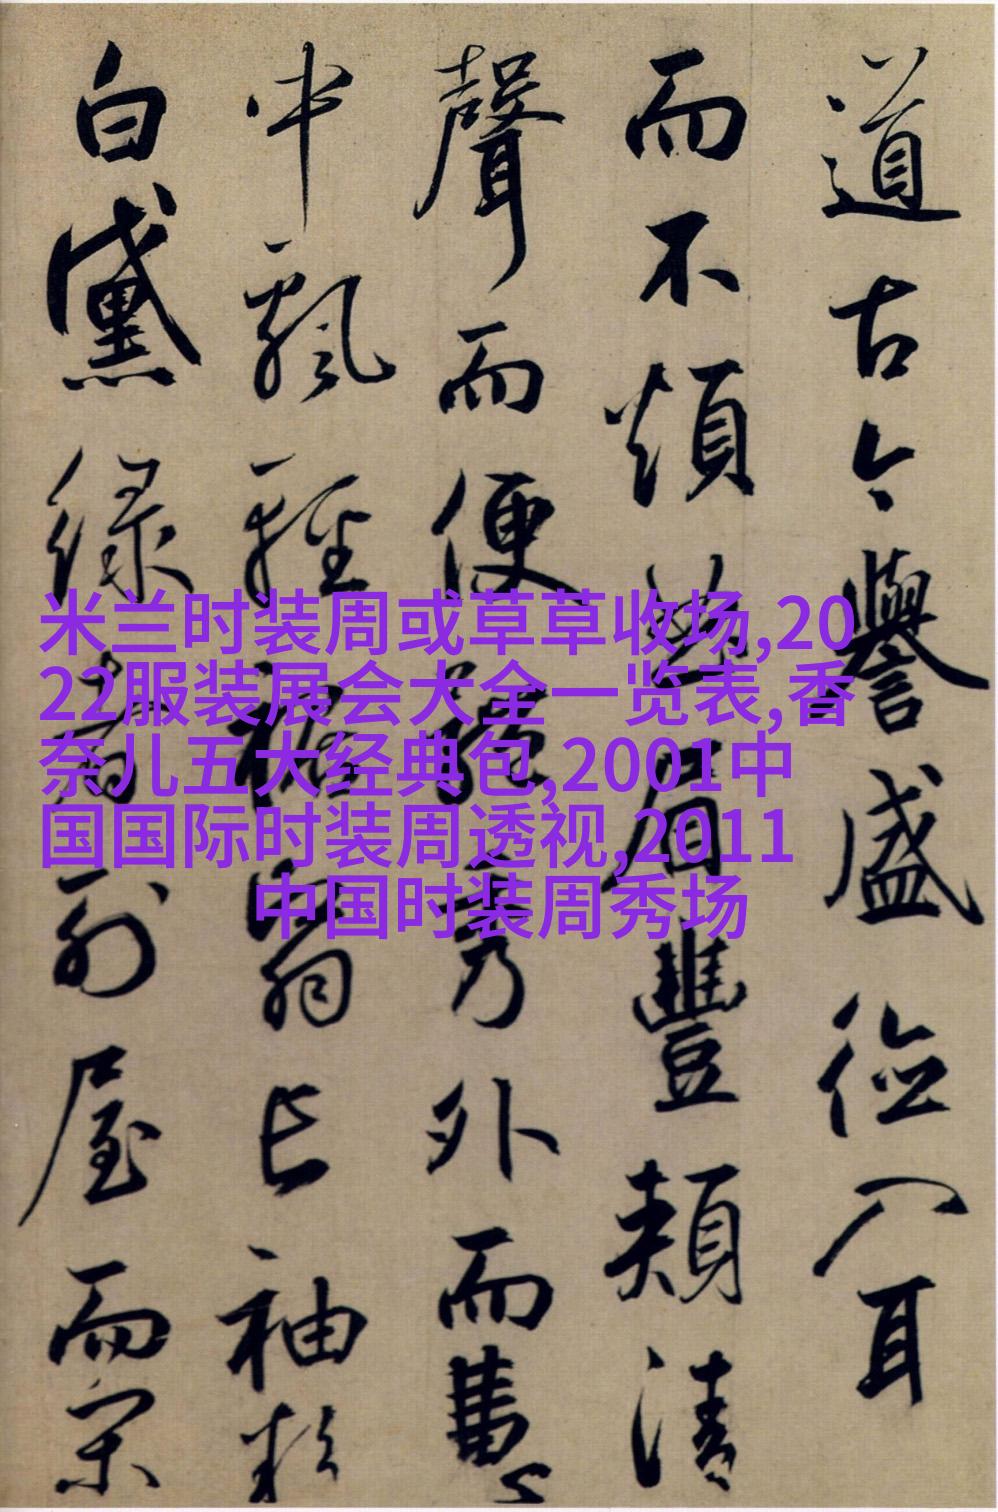 道古今譽盛德入耳
而不煩眉豐頰清
聲而便體秀外而惠
中飄輕裾翳長袖粉
白黛綠者列屋而閑
米兰时装周或草草收场,20
22服装展会大全一览表,香
奈儿五大经典包,2001中
国国际时装周透视,2011
中国时装周秀场